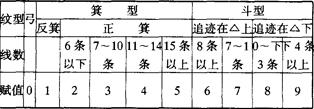 纹型 弓 箕 型 斗型
反箕 正 箕 追迹在△上 追迹在△下
线数 6条 7~10 11~14 15条 8条 7~1 0~下 下4条
以下 条 条 以上 以上 条 3条 以上
赋值 0 1 2 3 4 5 6 7 8 9